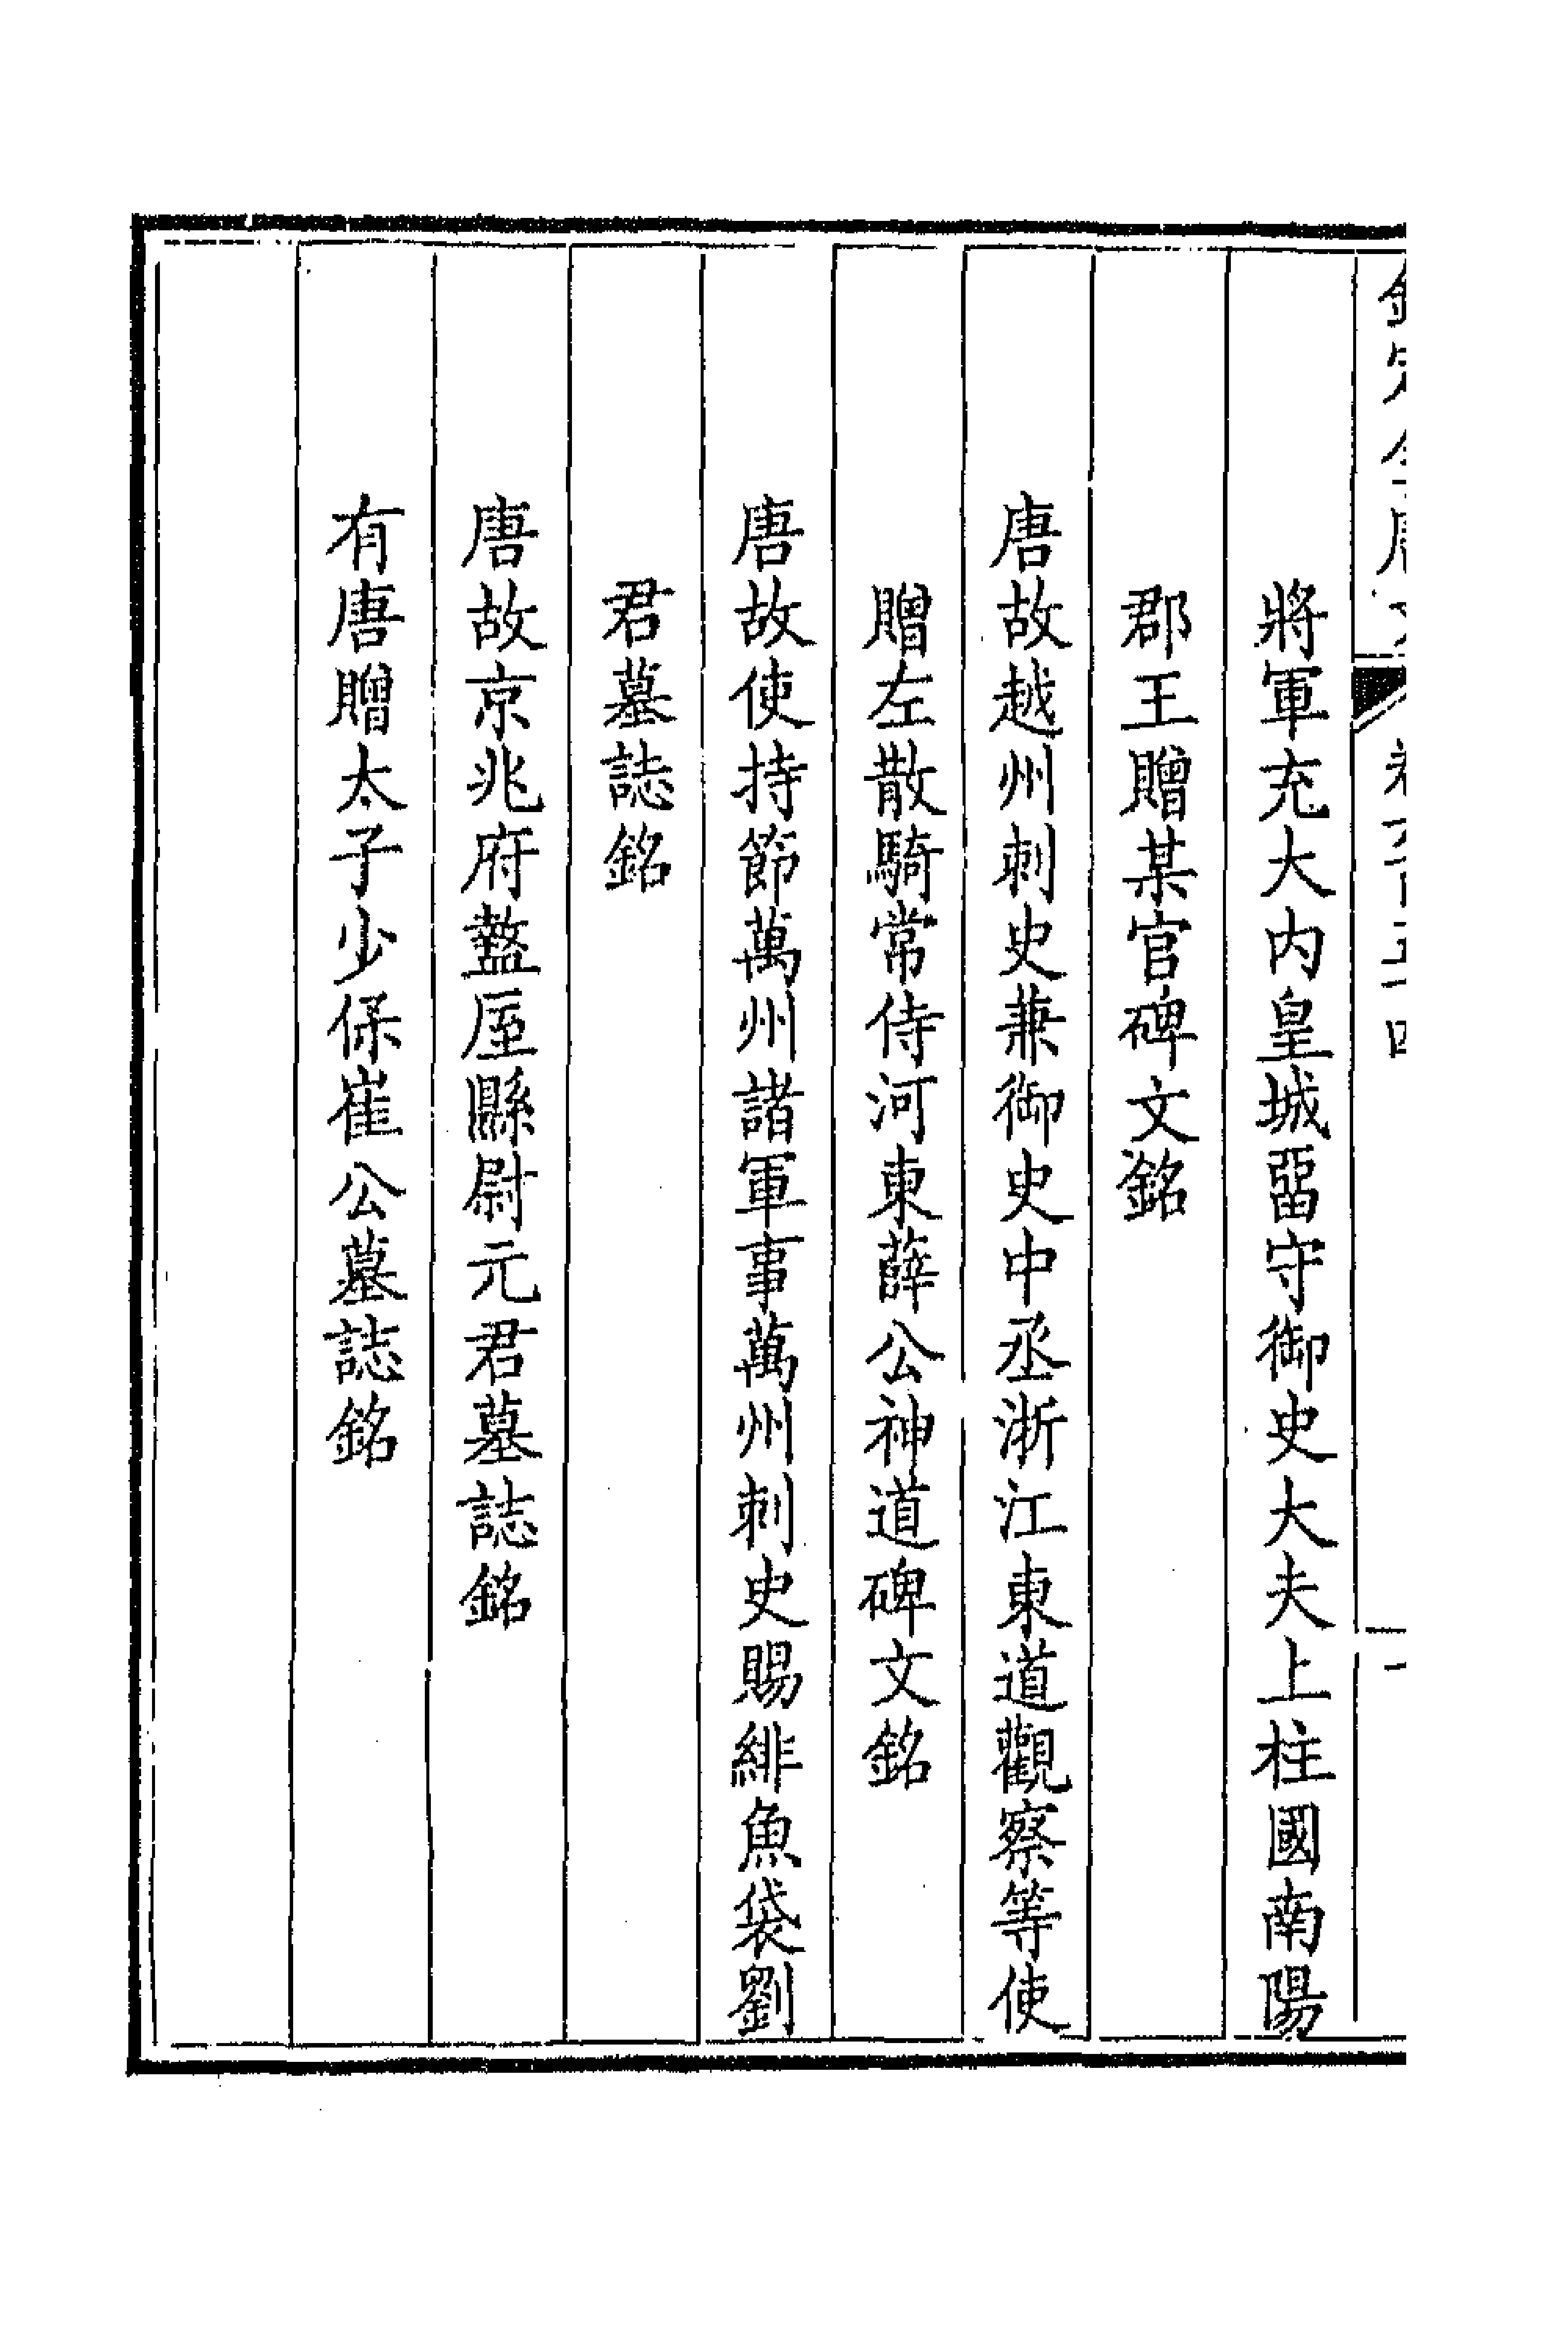 將軍充大內皇城畱守御史大夫上柱國南陽
郡王贈某官碑文銘
唐故越州刺史兼御史中丞浙江東道觀察等使
贈左散騎常侍河東薛公神道碑文銘
唐故使持節萬州諸軍事萬州刺史賜緋魚袋劉
君墓誌銘
唐故京兆府盩厔縣尉元君墓誌銘
有唐贈太子少保崔公墓誌銘